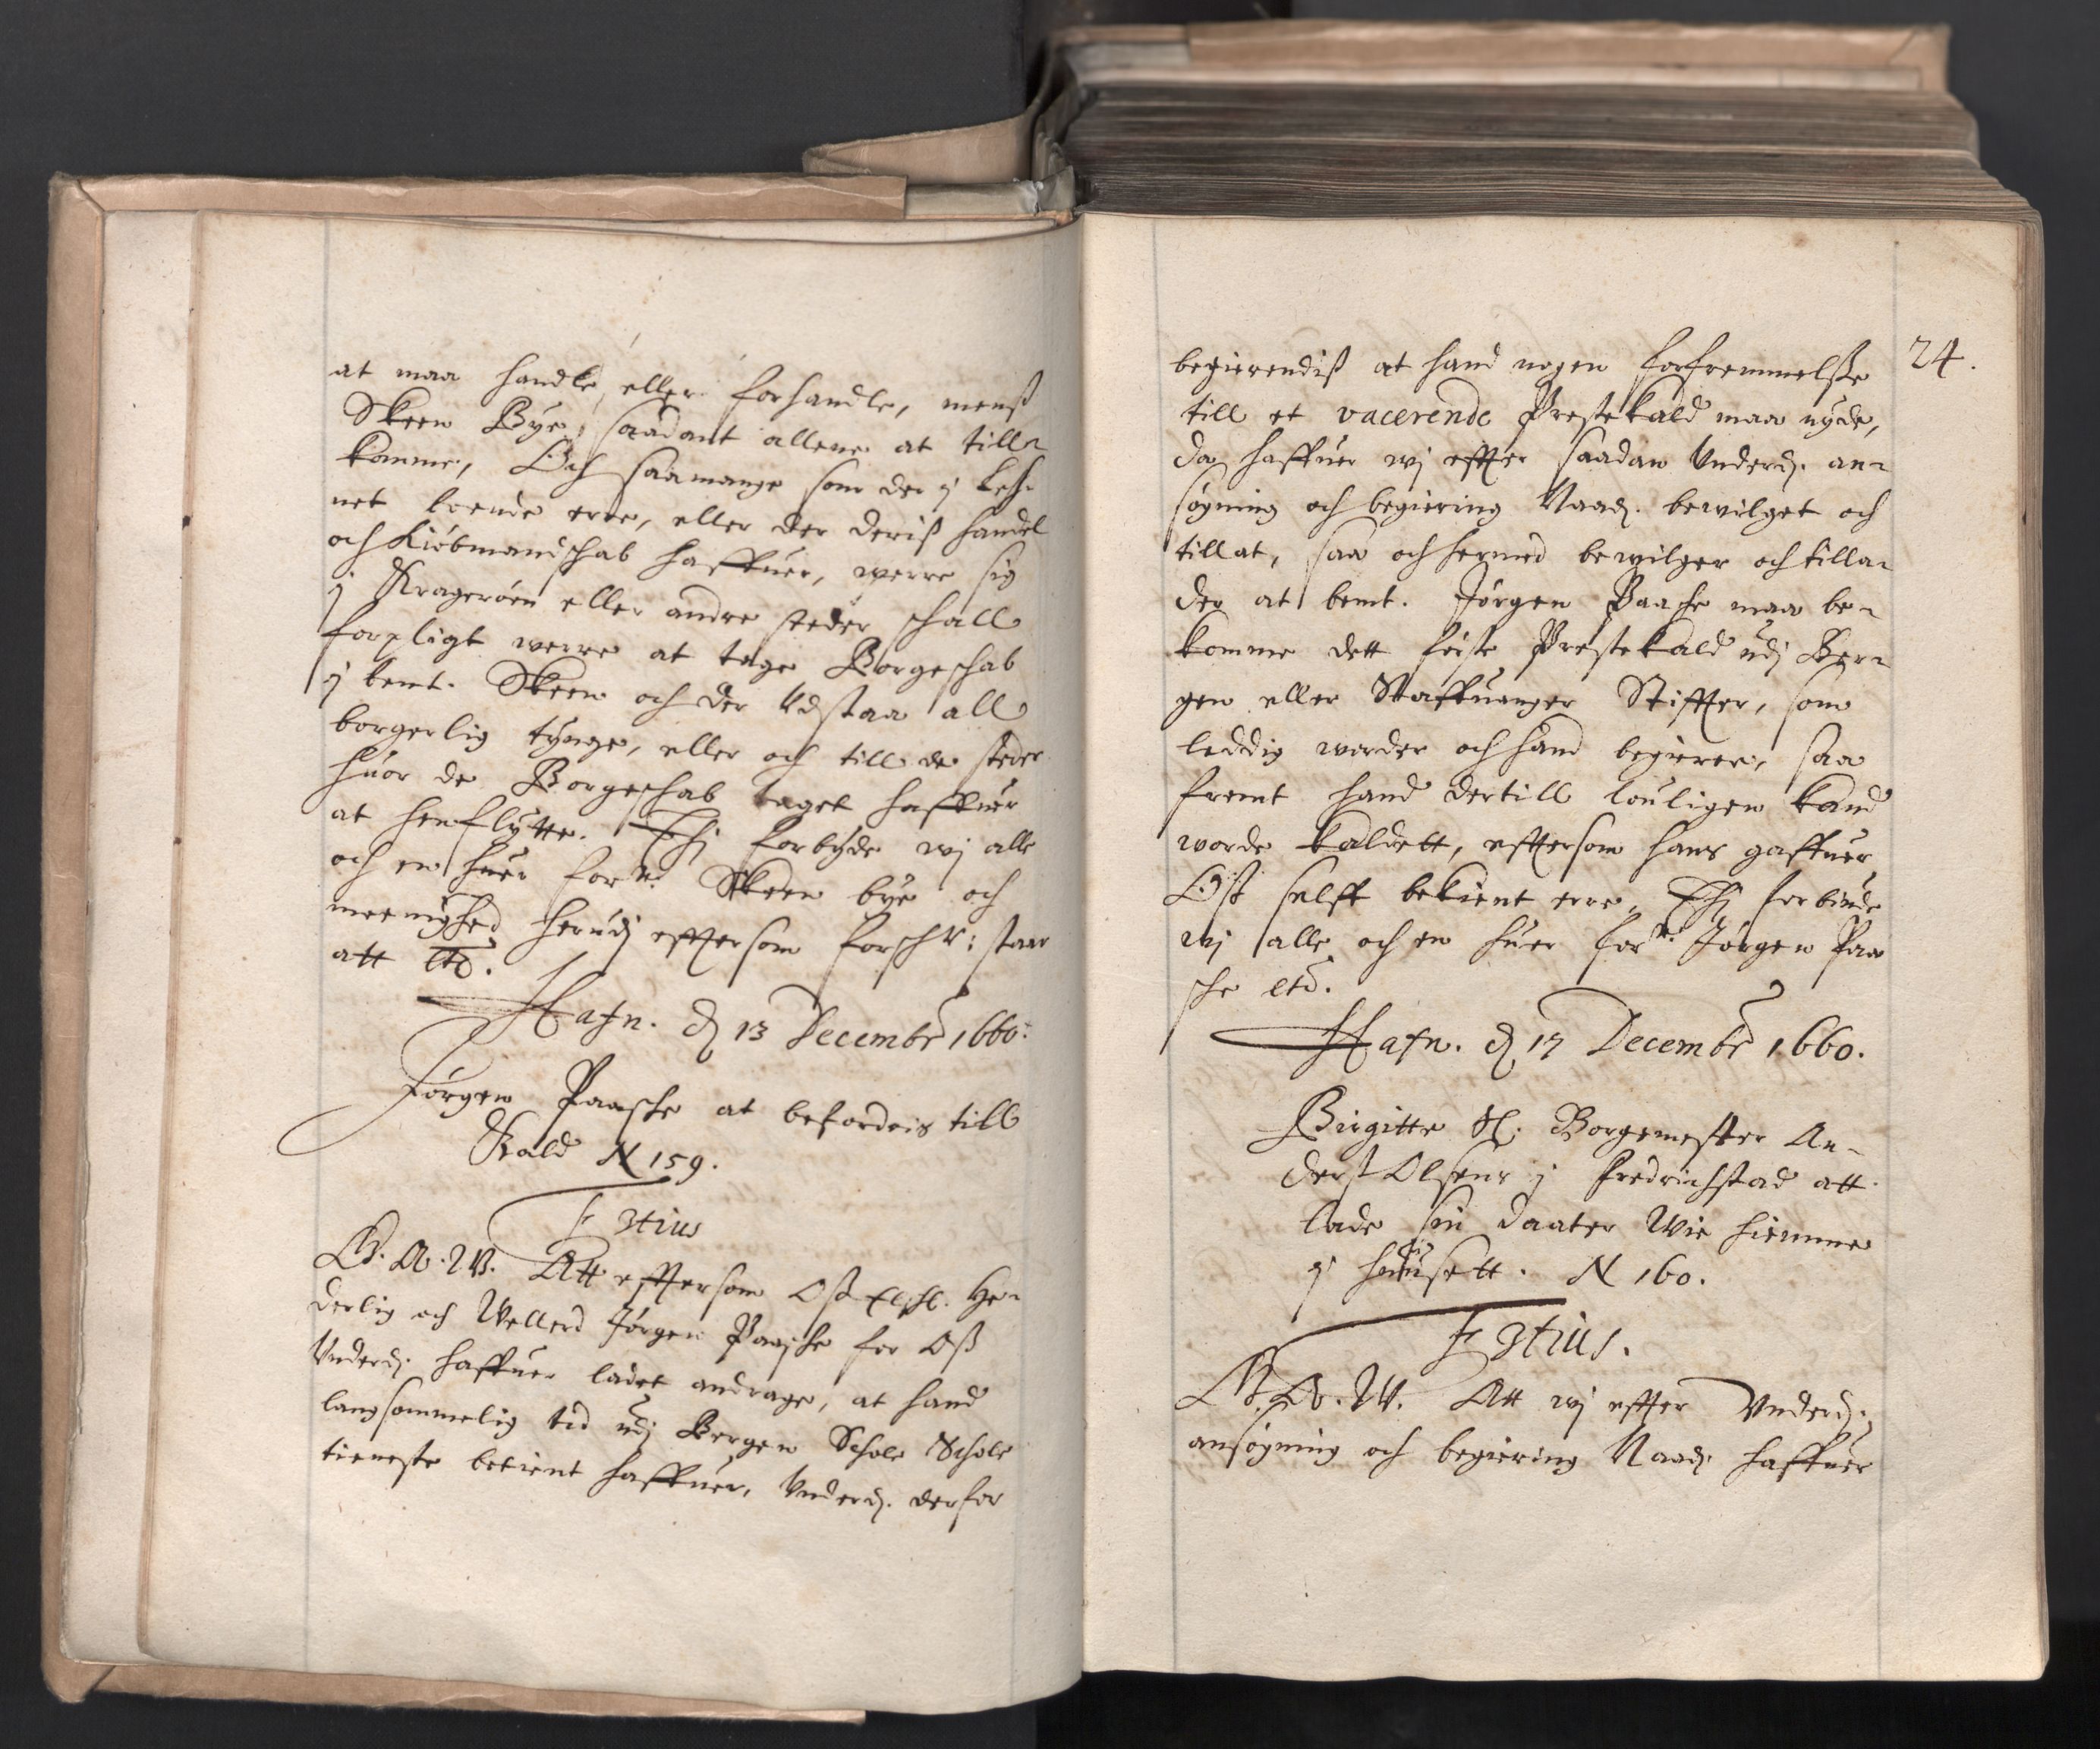 at maa handle, eller forhandle, menß
Skeen Bye, saadant allene at till-
komme, Och saamange som der j Leh-
net boende erre, eller der deriß handel
och Kiøbmandschab haffuer, werre sig
j Kragerøen eller andre steder schall
forpligt werre at tage Borgeschab
j bemt. Skeen och der Udstaa all
borgerlig tynge, eller och till de steder
huor de Borgeschab taget haffuer
at henflytte. Thj forbyde wj alle
och en huer forne. Skeen bye och
meenighed herudj effterson forschr: staar
att etc.
Hafn. d 13 Decembr 1660.
Jørgen Paasche at befordris till
Kald N 159.
F 3tius
G. A. W. Att effterson Oß Elschl. He-
derlig och Wellerd Jørgen Paasche for Oß
Underd. haffuer ladet andrage, at hand
langsommelig tid udj Bergen Schole Schole
tieneste betient haffuer, Underd. derfor
24.
begierendiß at hand nogen forfremmelsse
till et vacerende Prestekald maa nyde,
da haffuer wj effter saadan Underd. an-
søgning och begiering Naad. bewilget och
tillat, saa och hermed bewilger och tilla-
der at bemt. Jørgen Paasche maa be-
komme dett første Prestekald udj Ber-
gen eller Staffuanger Stiffter, som
leddig worder och hand begierer, saa
fremt hand dertill louligen kand
worde kaldett, efftersom hans gaffuer
Oß selff bekient erre, Thj forbiude
wj alle och en huer forne. Jørgen Paa
sche etc.
Hafn. d 17 Decembr 1660.
Birgitte Sl. Borgemester An-
derß Olsens j Fredrichstad att
lade sin daater Wie hiemme
j huusett. N 160.
F 3tius.
G. A. W. Att wj effter Underd.
ansøgning och begiering Naad. haffuer